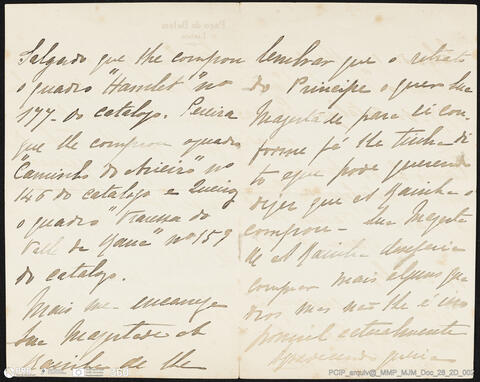 Paço de Belem
Lisboa
Salgado que lhe comprou
o quadro "Hamlet" nº
177 do catalogo. Pereira
que lhe comprou o quadro
"Caminho do Arieiro" nº
146 do catalogo e Queiroz
o quadro do
Valle de nº 159
do catalogo.
Mais me encarrega
Sua Magestade a
Rainha de lhe
lembrar que o retrato
do Principe o quer Sua
Magestade para si con
forme já lhe tinha di
to e que pode querendo
dizer que a Rainha o
comprou. Sua Magesta
de a Rainha desejaria
comprar mais alguns qua
dros mas não lhe é
possivel actualmente
PCIP_arquiv@_MMP_MJM_Doc_28_2D_002